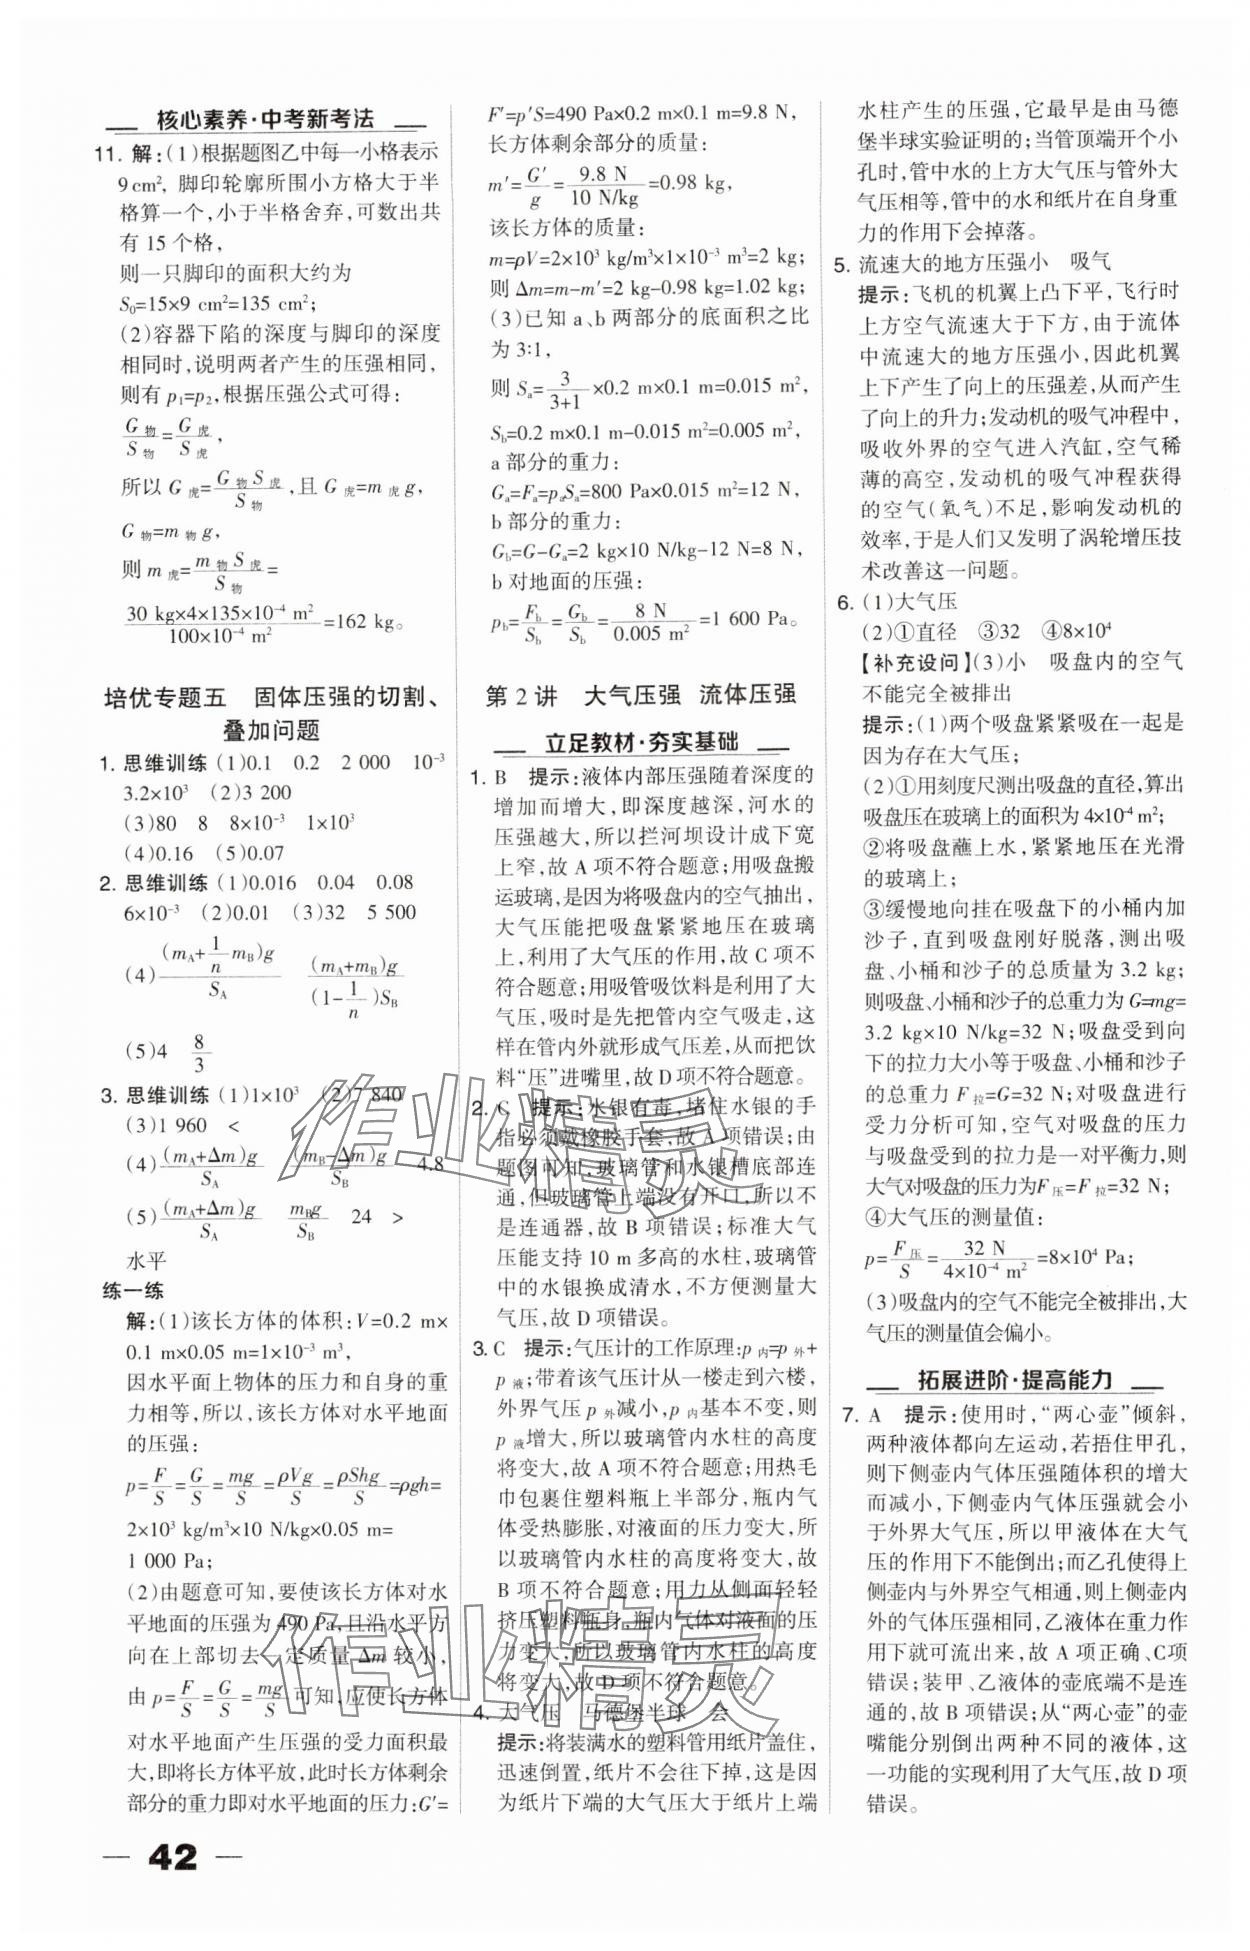 核心素养·中考新考法
11. 解:(1)根据题图乙中每一小格表示
9 cm², 脚印轮廓所围小方格大于半
格算一个,小于半格舍弃,可数出共
有 15 个格,
则一只脚印的面积大约为
S₀=15×9 cm²=135 cm²;
(2)容器下陷的深度与脚印的深度
相同时,说明两者产生的压强相同,
则有 p₁=p₂,根据压强公式可得:
G物/S物=G虎/S虎,
所以 G虎=G物S虎/S物,且 G虎=m虎g,
G物=m物g,
则 m虎=m物S虎/S物=
30 kg×4×135×10⁻⁴ m²/100×10⁻⁴ m²=162 kg。
培优专题五 固体压强的切割、
叠加问题
1. 思维训练 (1)0.1 0.2 2 000 10⁻³
3.2×10³ (2)3 200
(3)80 8 8×10⁻³ 1×10³
(4)0.16 (5)0.07
2. 思维训练 (1)0.016 0.04 0.08
6×10⁻³ (2)0.01 (3)32 5 500
(4)(mA+1/n mB)g/SA (mA+mB)g/(1-1/n)SB
(5)4 8/3
3. 思维训练 (1)1×10³ (2)7 840
(3)1 960 <
(4)(mA+Δm)g/SA (mB-Δm)g/SB 4.8
(5)(mA+Δm)g/SA mBg/SB 24 >
水平
练一练
解:(1)该长方体的体积:V=0.2 m×
0.1 m×0.05 m=1×10⁻³ m³,
因水平面上物体的压力和自身的重
力相等,所以,该长方体对水平地面
的压强:
p=F/S=G/S=mg/S=ρVg/S=ρShg/S=ρgh=
2×10³ kg/m³×10 N/kg×0.05 m=
1 000 Pa;
(2)由题意可知,要使该长方体对水
平地面的压强为 490 Pa,且沿水平方
向在上部切去一定质量 Δm 较小,
由 p=F/S=G/S=mg/S 可知,应使长方体
对水平地面产生压强的受力面积最
大,即将长方体平放,此时长方体剩余
部分的重力即对水平地面的压力:G′=
F′=p′S=490 Pa×0.2 m×0.1 m=9.8 N,
长方体剩余部分的质量:
m′=G′/g=9.8 N/10 N/kg=0.98 kg,
该长方体的质量:
m=ρV=2×10³ kg/m³×1×10⁻³ m³=2 kg;
则 Δm=m-m′=2 kg-0.98 kg=1.02 kg;
(3)已知 a、b 两部分的底面积之比
为 3∶1,
则 Sa=3/3+1×0.2 m×0.1 m=0.015 m²,
Sb=0.2 m×0.1 m-0.015 m²=0.005 m²,
a 部分的重力:
Ga=Fa=paSa=800 Pa×0.015 m²=12 N,
b 部分的重力:
Gb=G-Ga=2 kg×10 N/kg-12 N=8 N,
b 对地面的压强:
pb=Fb/Sb=Gb/Sb=8 N/0.005 m²=1 600 Pa。
第 2 讲 大气压强 流体压强
立足教材·夯实基础
1. B 提示:液体内部压强随着深度的
增加而增大,即深度越深,河水的
压强越大,所以拦河坝设计成下宽
上窄,故 A 项不符合题意;用吸盘搬
运玻璃,是因为将吸盘内的空气抽出,
大气压能把吸盘紧紧地压在玻璃
上,利用了大气压的作用,故 C 项不
符合题意;用吸管吸饮料是利用了大
气压,吸时是先把管内空气吸走,这
样在管内外就形成气压差,从而把饮
料“压”进嘴里,故 D 项不符合题意。
2. C 提示:水银有毒,堵住水银的手
指必须戴橡胶手套,故 A 项错误;由
题图可知,玻璃管和水银槽底部连
通,但玻璃管上端没有开口,所以不
是连通器,故 B 项错误;标准大气
压能支持 10 m 多高的水柱,玻璃管
中的水银换成清水,不方便测量大
气压,故 D 项错误。
3. C 提示:气压计的工作原理:p内=p外+
p液;带着该气压计从一楼走到六楼,
外界气压 p外减小,p内基本不变,则
p液增大,所以玻璃管内水柱的高度
将变大,故 A 项不符合题意;用热毛
巾包裹住塑料瓶上半部分,瓶内气
体受热膨胀,对液面的压力变大,所
以玻璃管内水柱的高度将变大,故
B 项不符合题意;用力从侧面轻轻
挤压塑料瓶身,瓶内气体对液面的压
力变大,所以玻璃管内水柱的高度
将变大,故 D 项不符合题意。
4. 大气压 马德堡半球 会
提示:将装满水的塑料管用纸片盖住,
迅速倒置,纸片不会往下掉,这是因
为纸片下端的大气压大于纸片上端
水柱产生的压强,它最早是由马德
堡半球实验证明的;当管顶端开个小
孔时,管中水的上方大气压与管外大
气压相等,管中的水和纸片在自身重
力的作用下会掉落。
5. 流速大的地方压强小 吸气
提示:飞机的机翼上凸下平,飞行时
上方空气流速大于下方,由于流体
中流速大的地方压强小,因此机翼
上下产生了向上的压强差,从而产生
了向上的升力;发动机的吸气冲程中,
吸收外界的空气进入汽缸,空气稀
薄的高空,发动机的吸气冲程获得
的空气(氧气)不足,影响发动机的
效率,于是人们又发明了涡轮增压技
术改善这一问题。
6. (1)大气压
(2)①直径 ③32 ④8×10⁴
【补充设问】(3)小 吸盘内的空气
不能完全被排出
提示:(1)两个吸盘紧紧吸在一起是
因为存在大气压;
(2)①用刻度尺测出吸盘的直径,算出
吸盘压在玻璃上的面积为 4×10⁻⁴ m²;
②将吸盘蘸上水,紧紧地压在光滑
的玻璃上;
③缓慢地向挂在吸盘下的小桶内加
沙子,直到吸盘刚好脱落,测出吸
盘、小桶和沙子的总质量为 3.2 kg;
则吸盘、小桶和沙子的总重力为 G=mg=
3.2 kg×10 N/kg=32 N;吸盘受到向
下的拉力大小等于吸盘、小桶和沙子
的总重力 F拉=G=32 N;对吸盘进行
受力分析可知,空气对吸盘的压力
与吸盘受到的拉力是一对平衡力,则
大气对吸盘的压力为F压=F拉=32 N;
④大气压的测量值:
p=F压/S=32 N/4×10⁻⁴ m²=8×10⁴ Pa;
(3)吸盘内的空气不能完全被排出,大
气压的测量值会偏小。
拓展进阶·提高能力
7. A 提示:使用时,“两心壶”倾斜,
两种液体都向左运动,若捂住甲孔,
则下侧壶内气体压强随体积的增大
而减小,下侧壶内气体压强就会小
于外界大气压,所以甲液体在大气
压的作用下不能倒出;而乙孔使得上
侧壶内与外界空气相通,则上侧壶内
外的气体压强相同,乙液体在重力作
用下就可流出来,故 A 项正确、C项
错误;装甲、乙液体的壶底端不是连
通的,故 B 项错误;从“两心壶”的壶
嘴能分别倒出两种不同的液体,这
一功能的实现利用了大气压,故 D 项
错误。
作业精灵
作业精灵
42